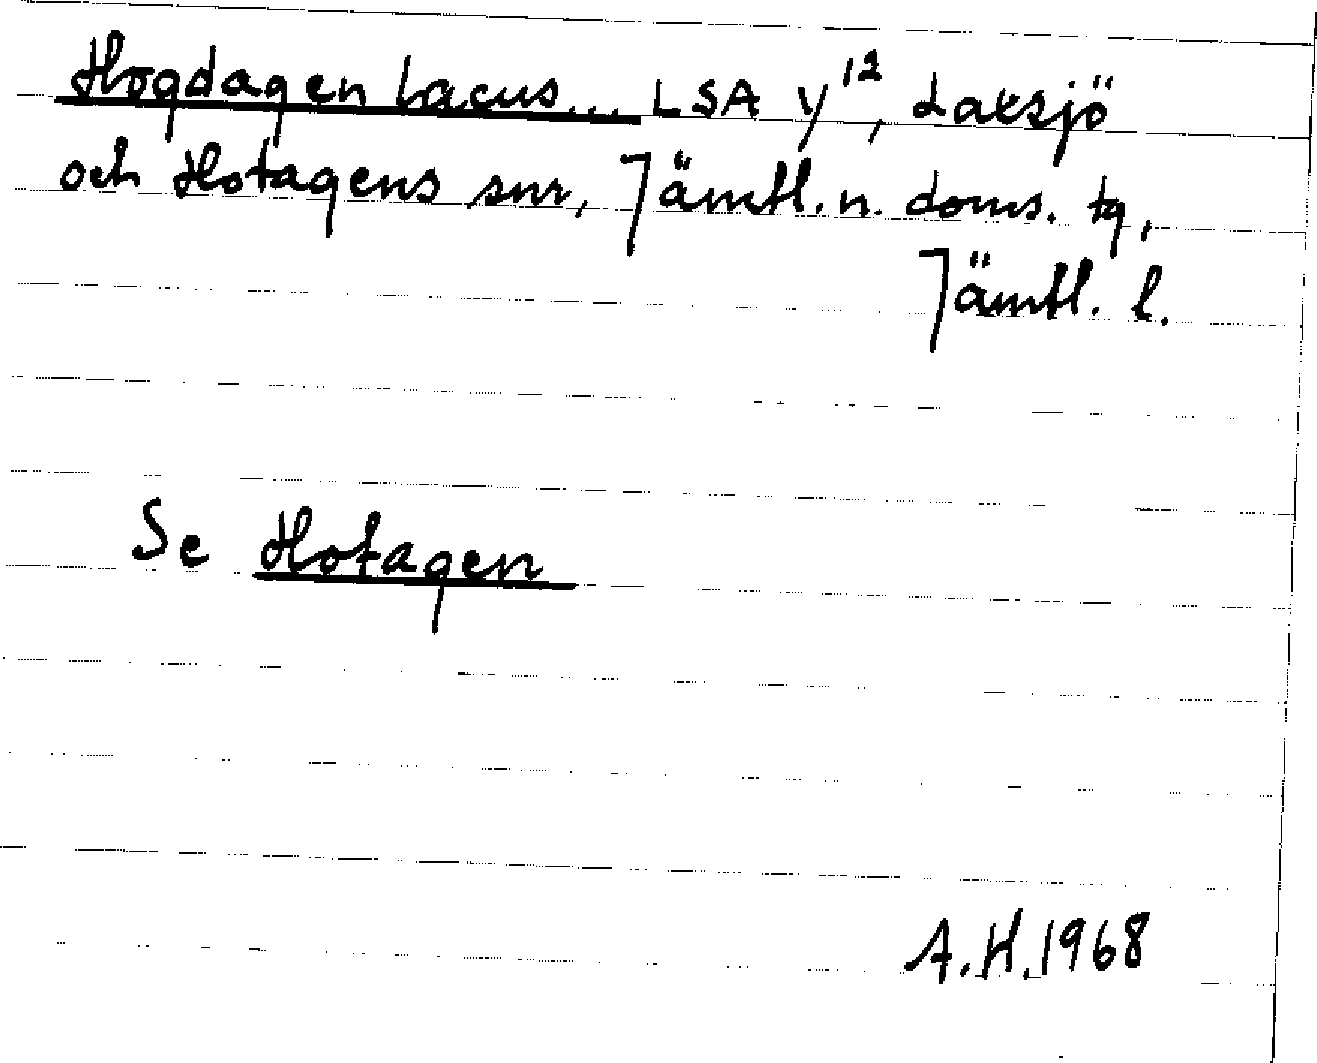 Hogdagen Lacus... LSA Y¹², Laxsjö
och Hotagens snr, Jämtl. n. doms. tg,
Jämtl. l.
Se Hotagen
A.H. 1968